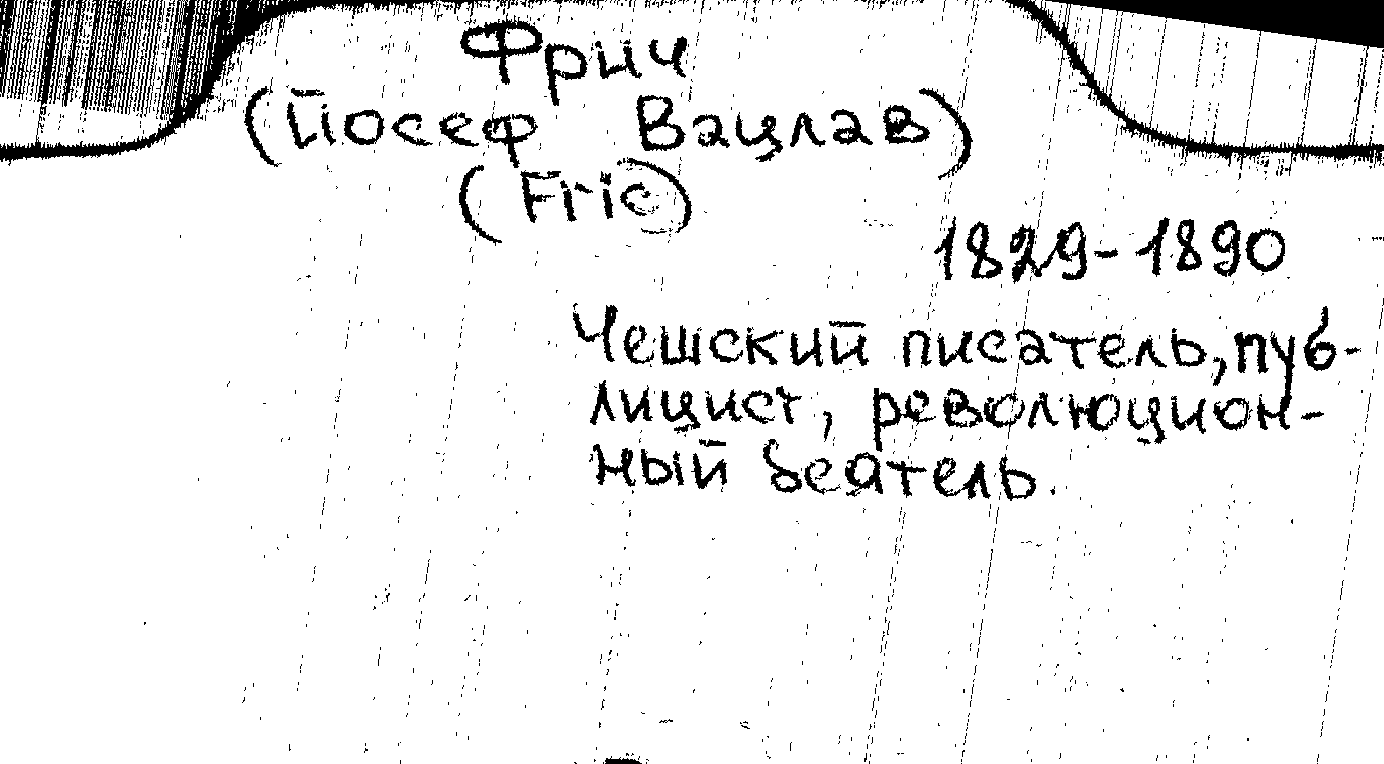 Фрич
(Йосеф Вацлав)
(Fric)
1829-1890
Чешский писатель, пуб-
лицист, революцион-
ный деятель.